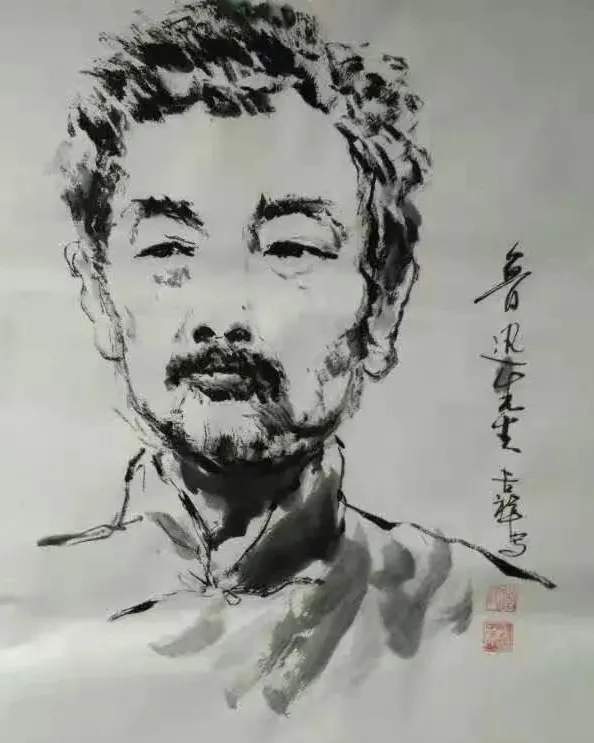 鲁迅先生
吉祥写